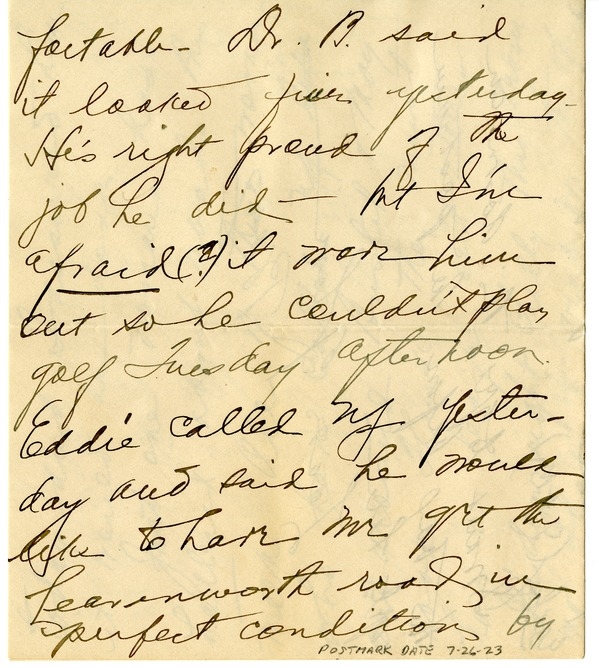 fortable - Dr. B. said
it looked fine yesterday -
He's right proud of the
job he did - but I'm
afraid (?) it wore him
out so he couldn't play
golf Tuesday afternoon.
Eddie called up yester-
day and said he would
like to have me get the
Leavenworth road in
perfect condition by
POSTMARK DATE 7-26-23